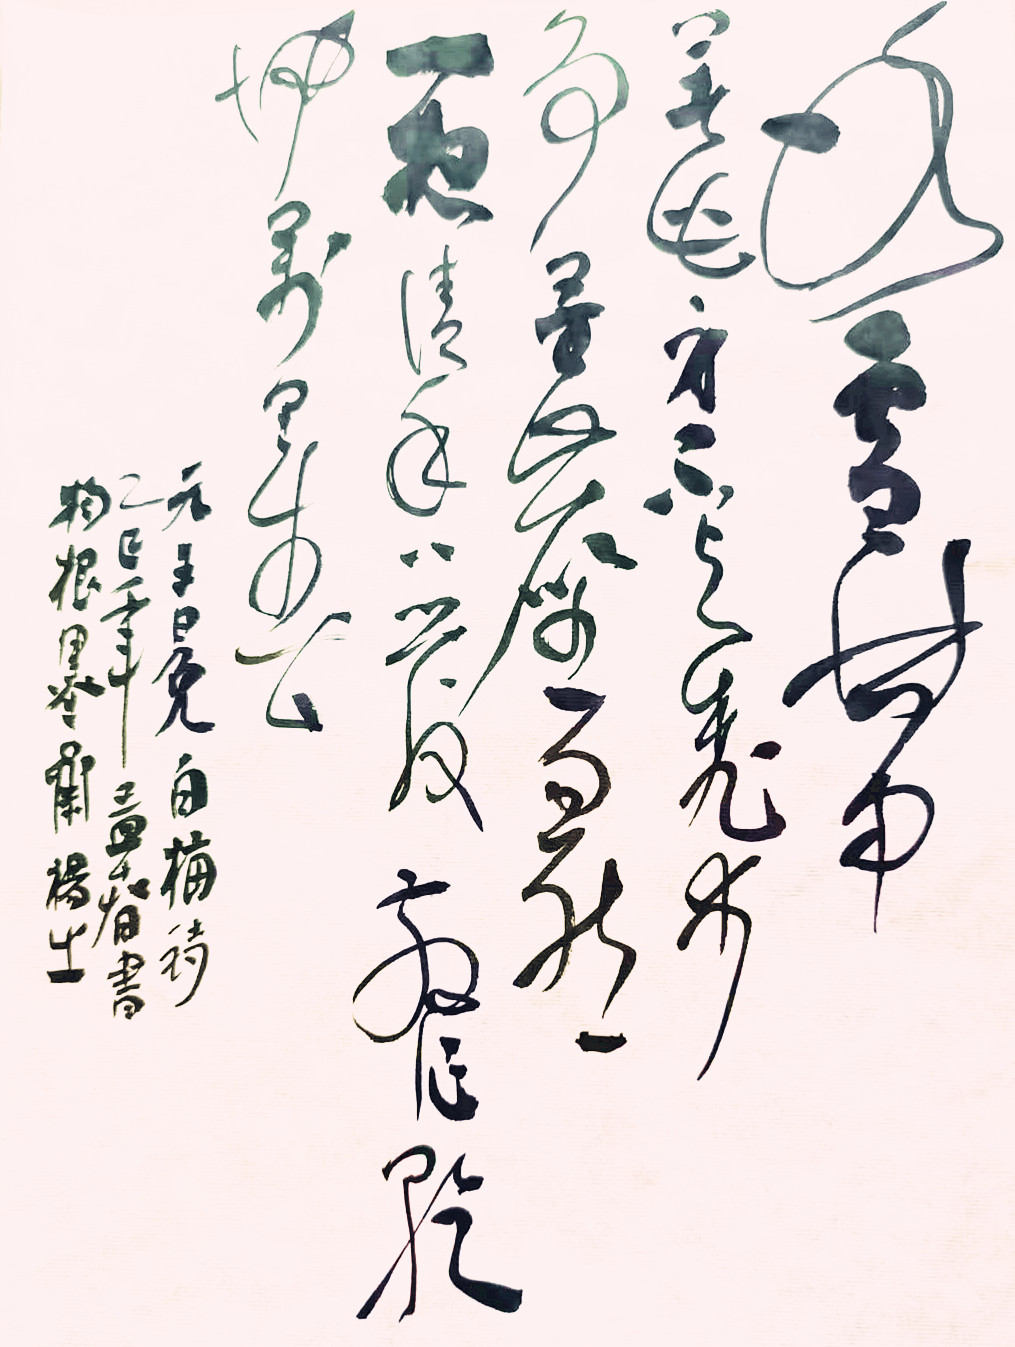 冰雪林中
著此身不与桃李
芳塵忽然一
夜清香發散作乾
坤萬里春
元王冕白梅詩
乙巳年孟春書